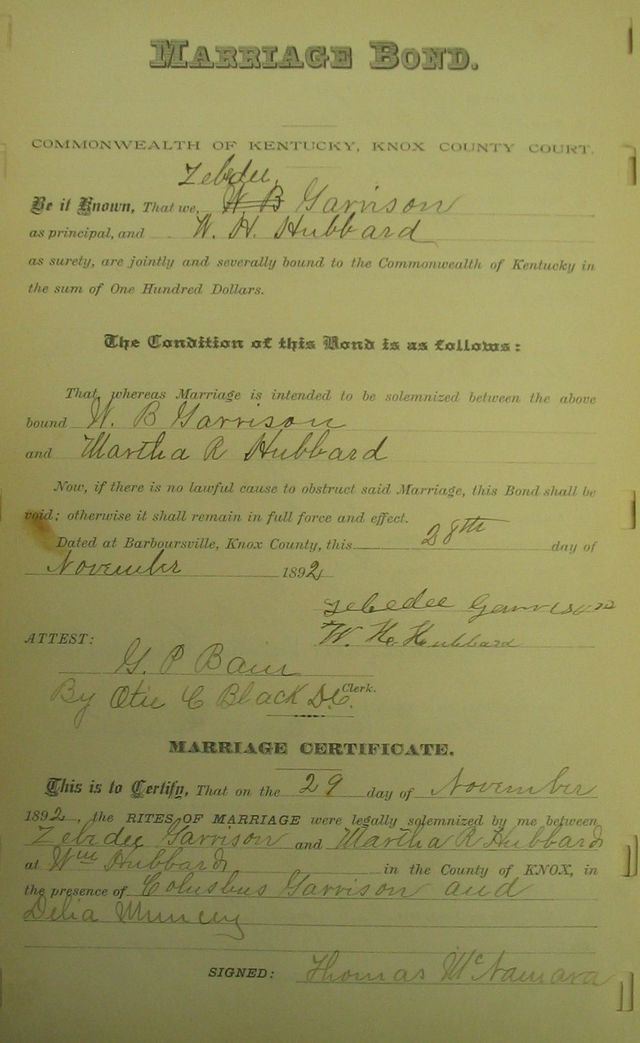 MARRIAGE BOND.
COMMONWEALTH OF KENTUCKY, KNOX COUNTY COURT.
Zebdee
Be it Known, That we, W B Garrison
as principal, and W. H. Hubbard
as surety, are jointly and severally bound to the Commonwealth of Kentucky in
the sum of One Hundred Dollars.
The Condition of this Bond is as follows:
That, whereas Marriage is intended to be solemnized between the above
bound W. B Garrison
and Martha R Hubbard
Now, if there is no lawful cause to obstruct said Marriage, this Bond shall be
void; otherwise it shall remain in full force and effect.
Dated at Barboursville, Knox County, this 28th day of
November 1892
Zebedee Garrison
W. H. Hubbard
ATTEST:
G. P Bain
Clerk.
By Otie C Black D.C.
MARRIAGE CERTIFICATE.
This is to Certify, That on the 29 day of November
1892, the RITES OF MARRIAGE were legally solemnized by me between
Zebdee Garrison and Martha R Hubbard
at Wm Hubbards in the County of KNOX, in
the presence of Columbus Garrison and
Delia Muncey
SIGNED: Thomas McNamara